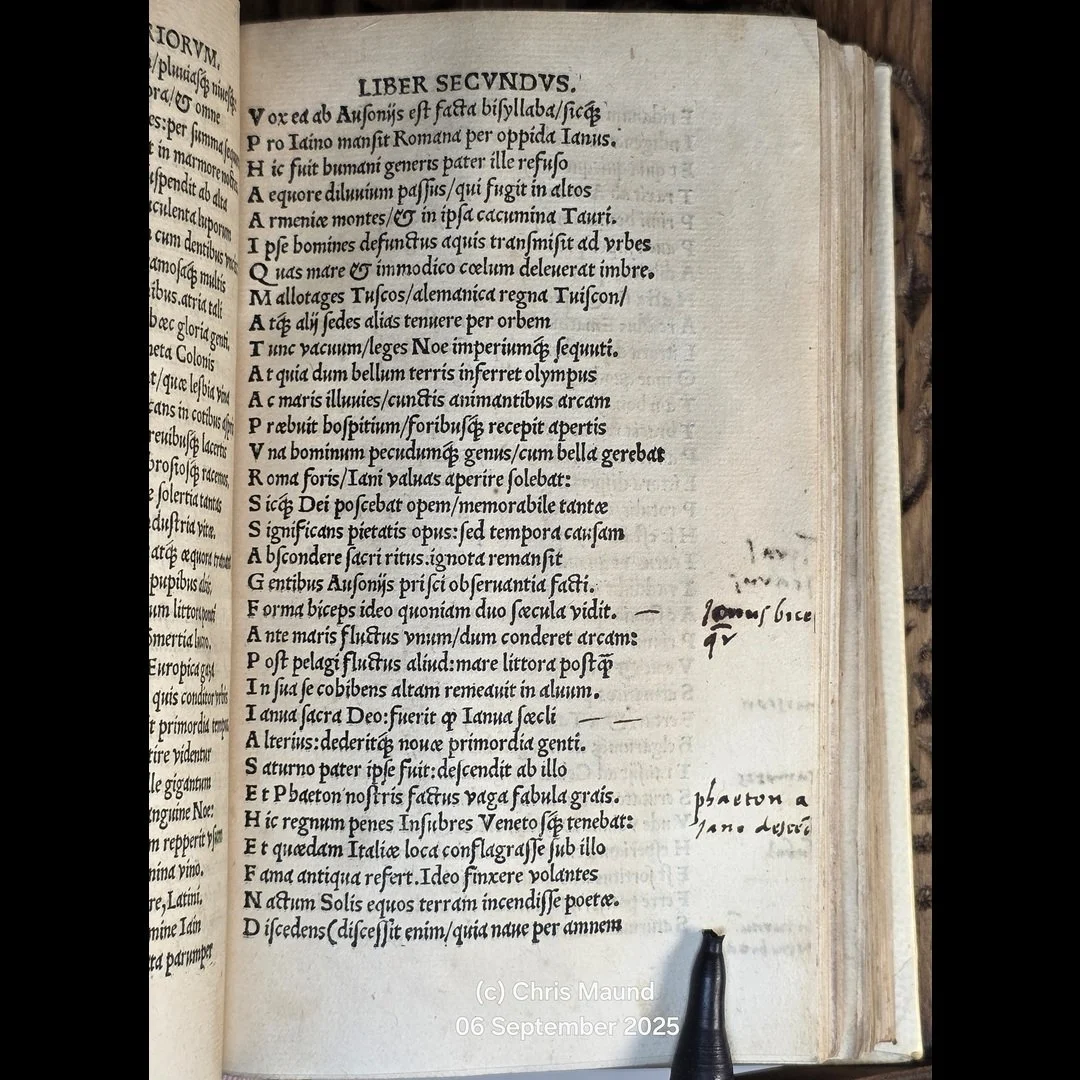 RIORVM.
/pluuiasq̃ niuesq̃
ora/& omne
es:per summa
t in marmore
uspendit ab alta
culenta luporum
cum dentibus
amosasq̃ multis
ibus.atria tali
hæc gloria genti.
meta Colonis
t/quæ lesbia vina
cans in cotibus
reuibusq̃ lacertis
brosiosq̃ racemos.
e solertia tantas
dustria vitæ.
atq̃ æquora
pupibus
um littora
ōmertia
Europica gaza
quis conditor vrbis
t primordia
tire videntur
lle gigantum
anguine Noe:
m repperit
mina vino.
re,Latini.
mine Iain
ta parumper
LIBER SECVNDVS.
Vox ea ab Ausonijs est facta bisyllaba/sicq̃
Pro Iaino mansit Romana per oppida Ianus.
Hic fuit humani generis pater ille refuso
Aequore diluuium passus/qui fugit in altos
Armeniæ montes/& in ipsa cacumina Tauri.
Ipse homines defunctus aquis transmisit ad vrbes
Quas mare & immodico cœlum deleuerat imbre.
Mallotages Tuscos/alemanica regna Tuiscon/
Atq̃ alij sedes alias tenuere per orbem
Tunc vacuum/leges Noe imperiumq̃ sequuti.
At quia dum bellum terris inferret olympus
Ac maris illuuies/cunctis animantibus arcam
Præbuit hospitium/foribusq̃ recepit apertis
Vna hominum pecudumq̃ genus/cum bella gerebat
Roma foris/Iani valuas aperire solebat:
Sicq̃ Dei poscebat opem/memorabile tantæ
Significans pietatis opus:sed tempora causam
Abscondere sacri ritus.ignota remansit
Gentibus Ausonijs prisci obseruantia facti.
Forma biceps ideo quoniam duo sæcula vidit.
Ante maris fluctus vnum/dum conderet arcam:
Post pelagi fluctus aliud:mare littora postq̃
In sua se cohibens altam remeauit in aluum.
Ianua sacra Deo:fuerit ꝙ Ianua sæcli
Alterius:dederitq̃ nouæ primordia genti.
Saturno pater ipse fuit:descendit ab illo
Et Phaeton nostris factus vaga fabula grais.
Hic regnum penes Insubres Venetosq̃ tenebat:
Et quædam Italiæ loca conflagrasse sub illo
Fama antiqua refert.Ideo finxere volantes
Nactum Solis equos terram incendisse poetæ.
Discedens(discessit enim/quia naue per amnem
Ianus bice
qr
phaeton a
Iano descē
(c) Chris Maund
06 September 2025